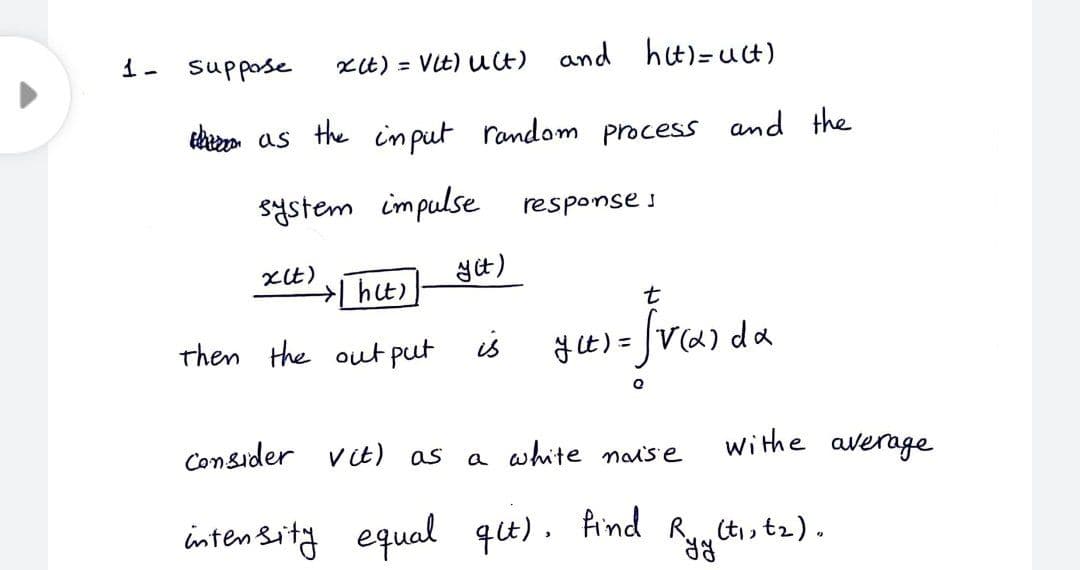 1- suppose x(t) = V(t) u(t) and h(t)=u(t)
as the input random process and the
system impulse response :
x(t) h(t) y(t)
Then the out put is y(t) = ∫₀ᵗ V(α) dα
Consider v(t) as a white noise withe average
intensity equal q(t), find Ryy(t₁,t₂).